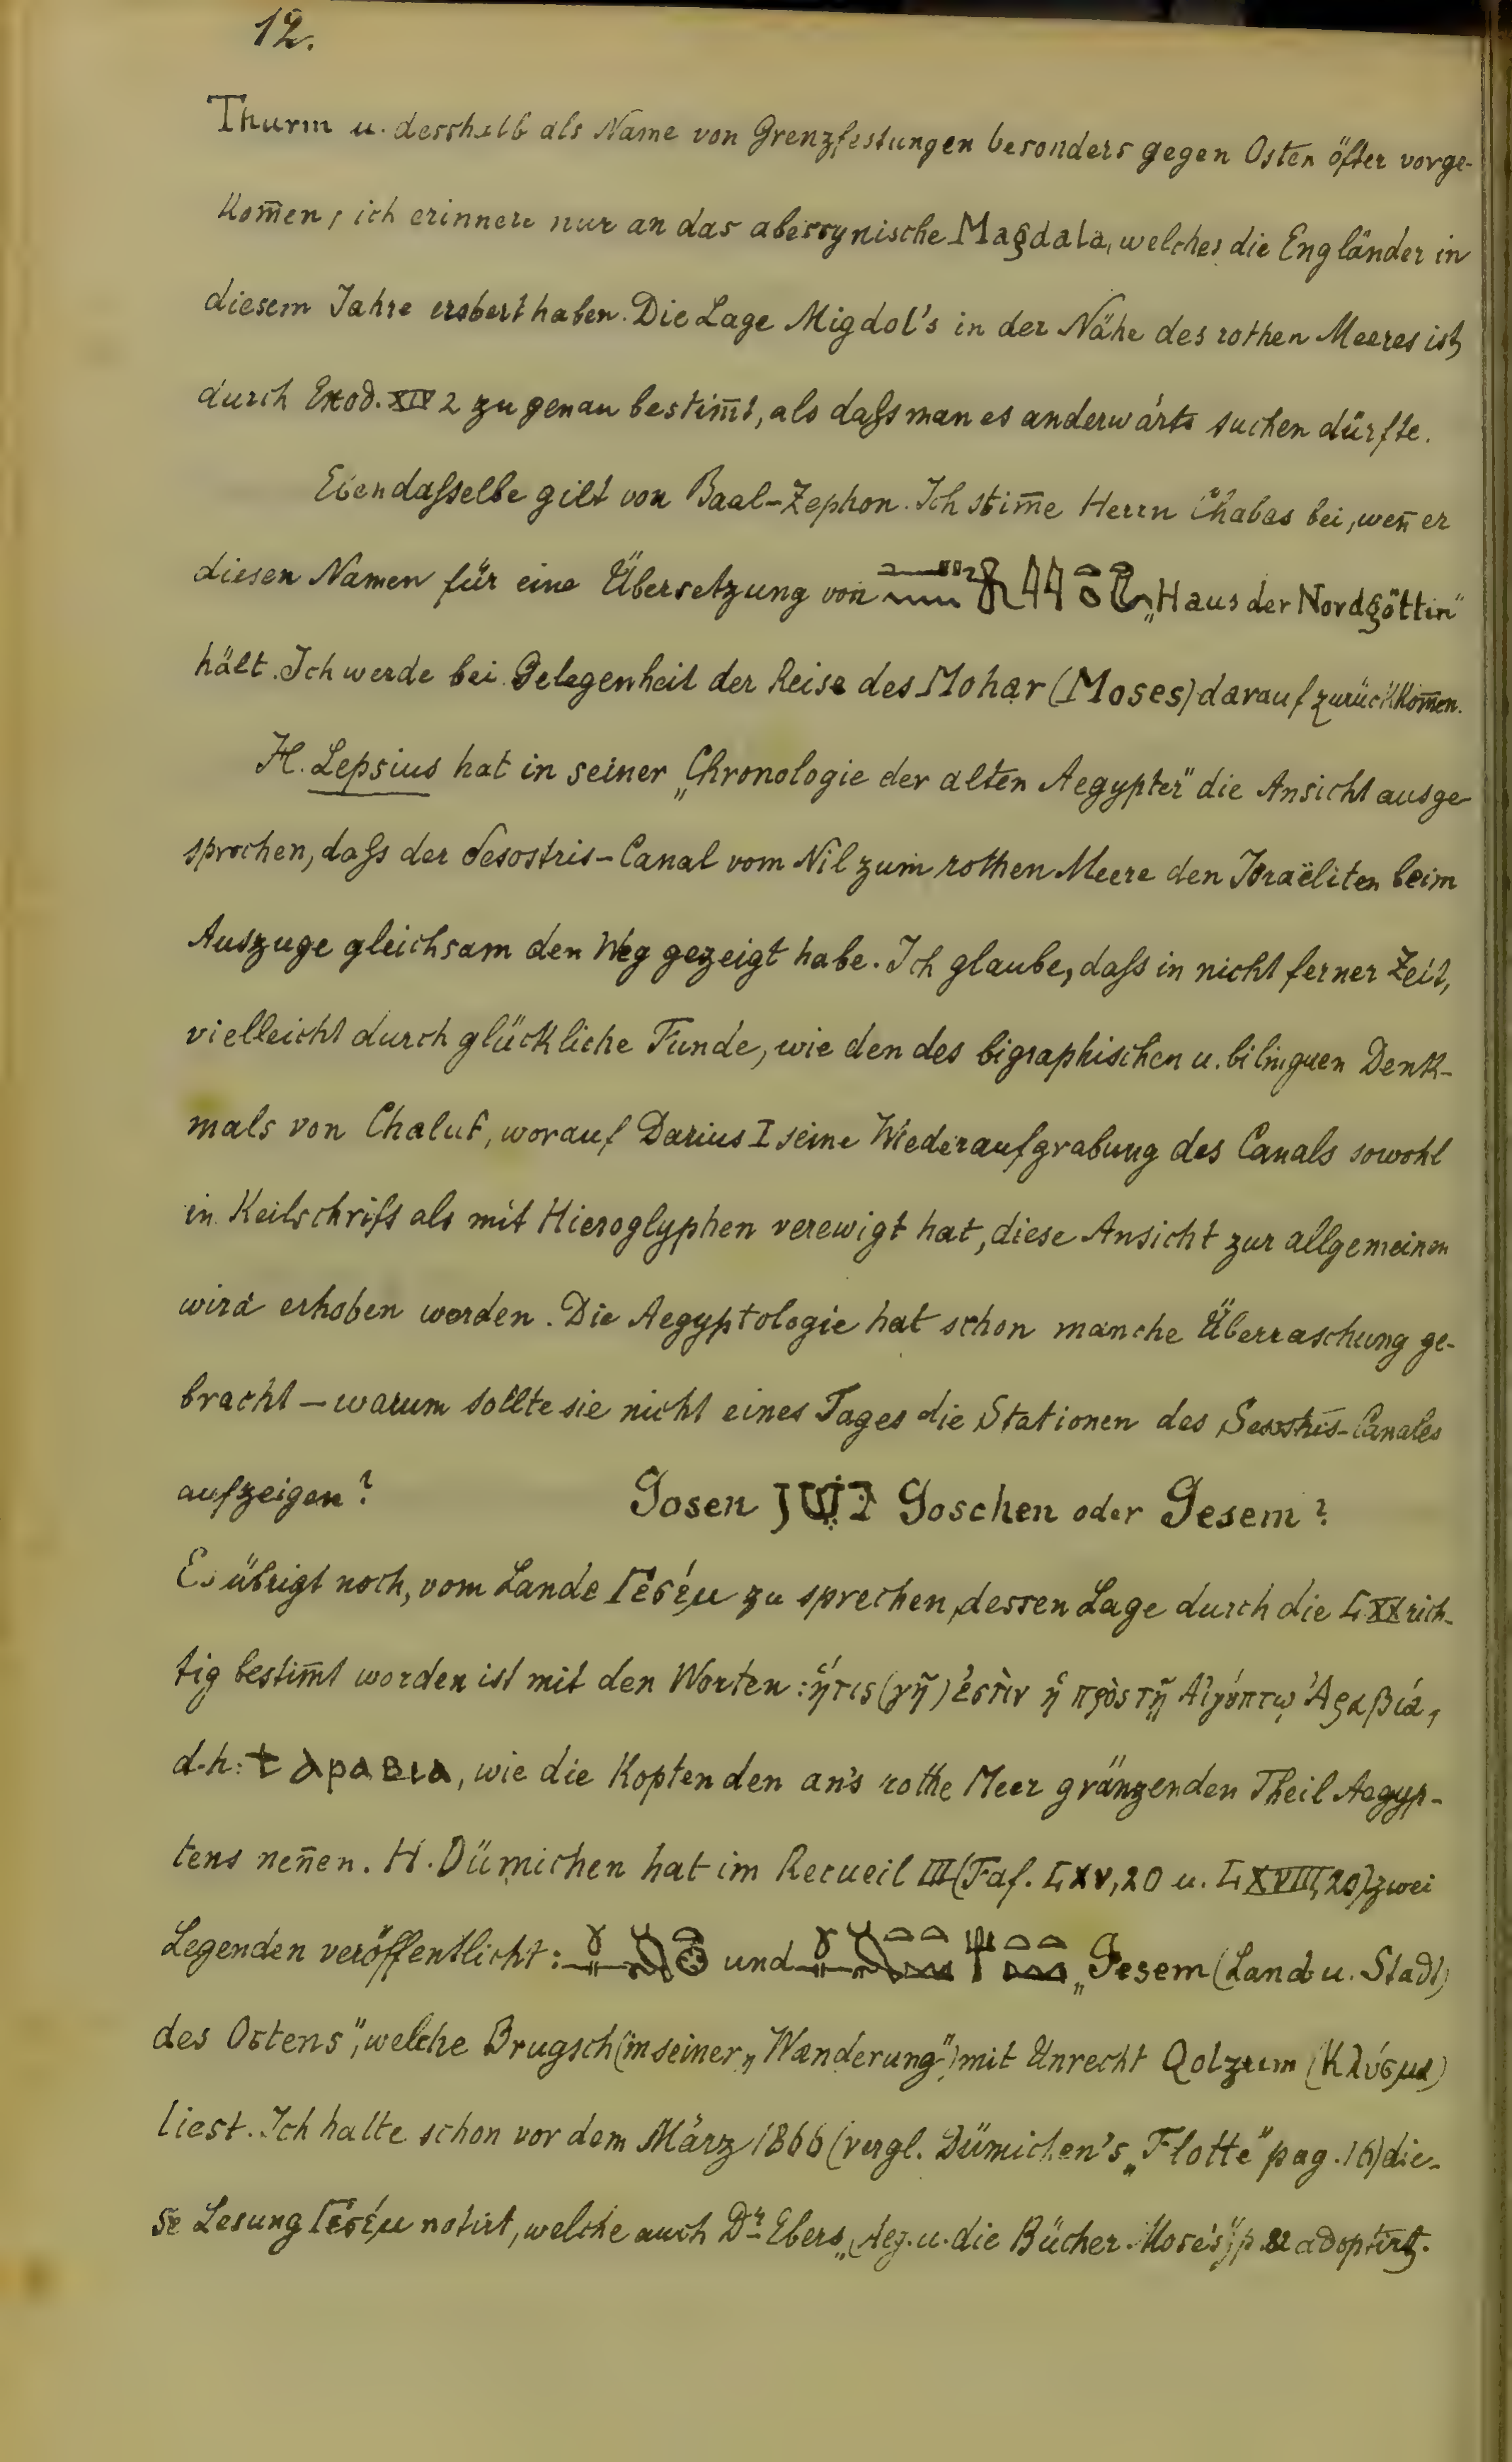 12.
Thurm u. desshalb als Name von Grenzfestungen besonders gegen Osten öfter vorge-
kom̄en, ich erinnere nur an das abessynische Magdala, welches die Engländer in
diesem Jahre erobert haben. Die Lage Migdol's in der Nähe des rothen Meeres ist
durch Exod. XIV 2 zu genau bestim̄t, als daſs man es anderwärts suchen dürfte.
Ebendaſselbe gilt von Baal-Zephon. Ich stim̄e Herrn Chabas bei, wen̄ er
diesen Namen für eine Übersetzung von „Haus der Nordgöttin"
hält. Ich werde bei Gelegenheit der Reise des Mohar (Moses) darauf zurückkom̄en.
H. Lepsius hat in seiner „Chronologie der alten Aegypter" die Ansicht ausge-
sprochen, daſs der Sesostris-Canal vom Nil zum rothen Meere den Israëliten beim
Auszuge gleichsam den Weg gezeigt habe. Ich glaube, daſs in nicht ferner Zeit,
vielleicht durch glückliche Funde, wie den des bigraphischen u. bilinguen Denk-
mals von Chaluf, worauf Darius I seine Wiederaufgrabung des Canals sowohl
in Keilschrift als mit Hieroglyphen verewigt hat, diese Ansicht zur allgemeinen
wird erhoben werden. Die Aegyptologie hat schon manche Überraschung ge-
bracht — warum sollte sie nicht eines Tages die Stationen des Sesostris-Canales
aufzeigen?
Gosen גֹּשֶׁן Goschen oder Gesem?
Es übrigt noch, vom Lande Γεσέμ zu sprechen, dessen Lage durch die LXX rich-
tig bestim̄t worden ist mit den Worten: ἥτις (γῆ) ἐστὶν ἡ πρὸς τῇ Αἰγύπτῳ Ἀραβιά,
d. h: ϯ ⲁⲣⲁⲃⲓⲁ, wie die Kopten den an's rothe Meer gränzenden Theil Aegyp-
tens nen̄en. H. Dümichen hat im Recueil III (Taf. LXV, 20 u. LXVIII, 20) zwei
Legenden veröffentlicht: und „Gesem (Land u. Stadt)
des Ostens", welche Brugsch (in seiner „Wanderung") mit Unrecht Qolzum (Κλύσμα)
liest. Ich hatte schon vor dem März 1866 (vergl. Dümichen's „Flotte" pag. 16) die-
se Lesung Γεσέμ notirt, welche auch Dr Ebers „Aeg. u. die Bücher Mose's" p. adoptirt.